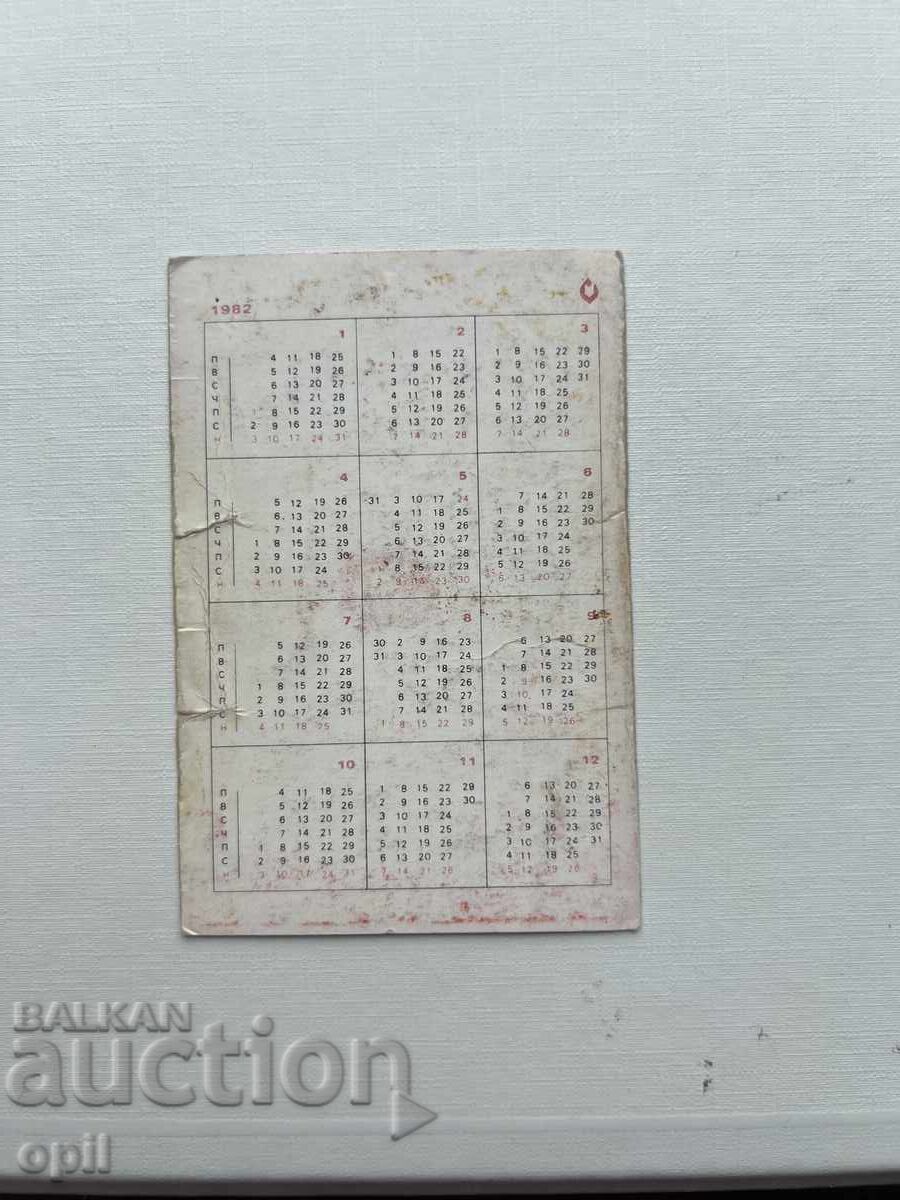 1982
1 2 3
П 4 11 18 25 1 8 15 22 1 8 15 22 29
В 5 12 19 26 2 9 16 23 2 9 16 23 30
С 6 13 20 27 3 10 17 24 3 10 17 24 31
Ч 7 14 21 28 4 11 18 25 4 11 18 25
П 1 8 15 22 29 5 12 19 26 5 12 19 26
С 2 9 16 23 30 6 13 20 27 6 13 20 27
Н 3 10 17 24 31 7 14 21 28 7 14 21 28
4 5 6
П 5 12 19 26 31 3 10 17 24 7 14 21 28
В 6 13 20 27 4 11 18 25 1 8 15 22 29
С 7 14 21 28 5 12 19 26 2 9 16 23 30
Ч 1 8 15 22 29 6 13 20 27 3 10 17 24
П 2 9 16 23 30 7 14 21 28 4 11 18 25
С 3 10 17 24 1 8 15 22 29 5 12 19 26
Н 4 11 18 25 2 9 16 23 30 6 13 20 27
7 8 9
П 5 12 19 26 30 2 9 16 23 6 13 20 27
В 6 13 20 27 31 3 10 17 24 7 14 21 28
С 7 14 21 28 4 11 18 25 1 8 15 22 29
Ч 1 8 15 22 29 5 12 19 26 2 9 16 23 30
П 2 9 16 23 30 6 13 20 27 3 10 17 24
С 3 10 17 24 31 7 14 21 28 4 11 18 25
Н 4 11 18 25 1 8 15 22 29 5 12 19 26
10 11 12
П 4 11 18 25 1 8 15 22 29 6 13 20 27
В 5 12 19 26 2 9 16 23 30 7 14 21 28
С 6 13 20 27 3 10 17 24 1 8 15 22 29
Ч 7 14 21 28 4 11 18 25 2 9 16 23 30
П 1 8 15 22 29 5 12 19 26 3 10 17 24 31
С 2 9 16 23 30 6 13 20 27 4 11 18 25
Н 3 10 17 24 31 7 14 21 28 5 12 19 26
BALKAN
auction
opil